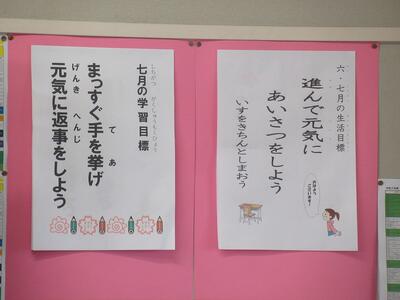 六・七月の生活目標
進んで元気に
あいさつをしよう
いすをきちんとしまおう
おはようございます！
七月の学習目標
しちがつ がくしゅうもくひょう
まっすぐ手を挙げ
て あ
元気に返事をしよう
げんき へんじ